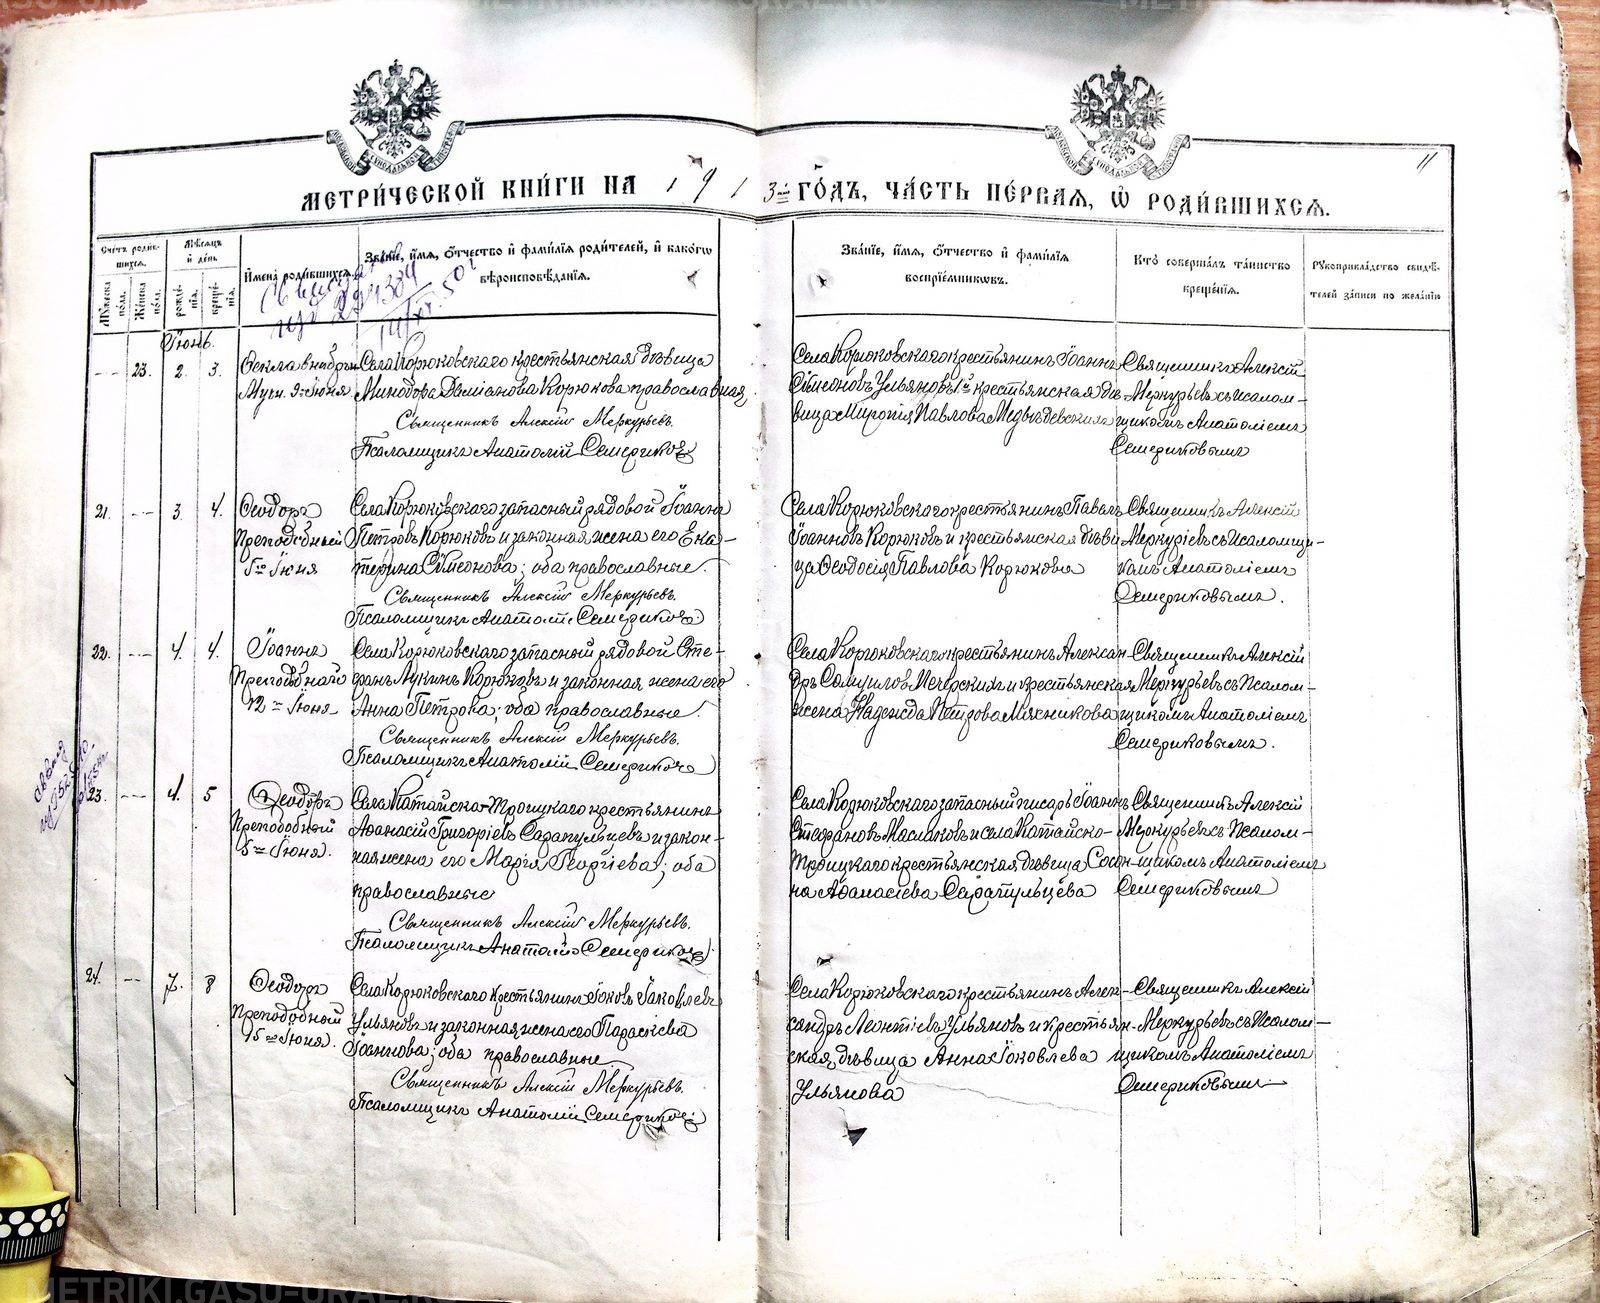 11
МЕТРИ́ЧЕСКОЙ КНИ́ГИ НА 1913й ГО́ДЪ, ЧА́СТЬ ПЕ́РВАЯ, Ѡ РОДИ́ВШИХСѦ.
Сче́тъ роди́вшихся.
Мꙋ́жеска по́ла.
Же́нска по́ла.
Мѣ́сяцъ и҆ де́нь
рожде́нїя.
креще́нїя.
И҆мена̀ роди́вшихся.
Зва́нїе, и҆́мя, ѻ҆́тчество и҆ фами́лїя роди́телей, и҆ како́гѡ
вѣроисповѣ́данїя.
Зва́нїе, и҆́мя, ѻ҆́тчество и҆ фами́лїя
воспрїе́мниковъ.
Кто̀ соверша́лъ та́инство
креще́нїя.
Рꙋкоприкла́дство свидѣ́-
телей за́писи по жела́нїю
Іюнь.
23. 2. 3.
Муч. 9го Іюня
Села Корюковскаго крестьянская дѣвица
Минодора Даміанова Корюкова православная
Священникъ Алексій Меркурьевъ.
Псаломщикъ Анатолій Семериковъ
Села Корюковскаго крестьянинъ Іоаннъ
Симеоновъ Ульяновъ и крестьянская дѣ-
вица Миропія Павлова
Священникъ Алексій
Меркурьевъ съ псалом-
щикомъ Анатоліемъ
Семериковымъ
21. 3. 4.
Ѳеодоръ
Преподобный
5го Іюня
Села Корюковскаго запасный рядовой Іоаннъ
Петровъ Корюковъ и законная жена его Ека-
терина Симеонова; оба православные.
Священникъ Алексій Меркурьевъ.
Псаломщикъ Анатолій Семериковъ
Села Корюковскаго крестьянинъ Павелъ
Іоанновъ Корюковъ и крестьянская дѣви-
ца Ѳеодосія Павлова Корюкова
Священникъ Алексій
Меркуріевъ съ псаломщи-
комъ Анатоліемъ
Семериковымъ.
22. 4. 4.
Іоаннъ
Преподобнаго
12го Іюня
Села Корюковскаго запасный рядовой Сте-
фанъ Лукинъ Корюковъ и законная жена его
Анна Петрова; оба православные.
Священникъ Алексій Меркурьевъ.
Псаломщикъ Анатолій Семериковъ
Села Корюковскаго крестьянинъ Алексан-
дръ Самуиловъ Печерскихъ и крестьянская
жена Надежда Петрова Мясникова
Священникъ Алексій
Меркурьевъ съ псалом-
щикомъ Анатоліемъ
Семериковымъ.
23. 4. 5
Ѳеодоръ
Преподобный
5го Іюня.
Села Катайско-Троицкаго крестьянинъ
Аѳанасій Григоріевъ Сарапульцевъ и закон-
ная жена его Марія Георгіева; оба
православные
Священникъ Алексій Меркурьевъ.
Псаломщикъ Анатолій Семериковъ
Села Корюковскаго запасный писарь Іоаннъ
Стефановъ Маслаковъ и села Катайско-
Троицкаго крестьянская дѣвица Сосан-
на Аѳанасіева Сарапульцева
Священникъ Алексій
Меркурьевъ съ псалом-
щикомъ Анатоліемъ
Семериковымъ
24. 7. 8
Ѳеодоръ
Преподобный
15го Іюня.
Села Корюковскаго крестьянинъ Іаковъ Іаковлевъ
Ульяновъ и законная жена его Параскева
Іоаннова; оба православные
Священникъ Алексій Меркурьевъ.
Псаломщикъ Анатолій Семериковъ
Села Корюковскаго крестьянинъ Алек-
сандръ Леонтіевъ Ульяновъ и крестьян-
ская дѣвица Анна Іаковлева
Ульянова
Священникъ Алексій
Меркурьевъ съ псалом-
щикомъ Анатоліемъ
Семериковымъ
METRIKI.GASU-URAL.RU